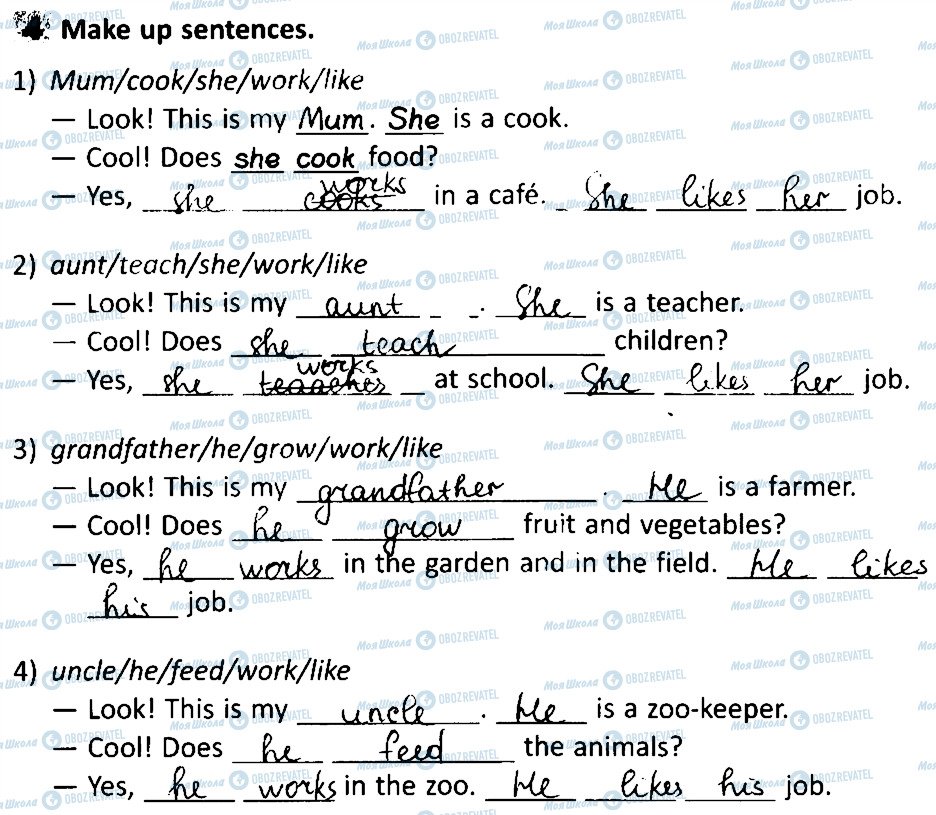 4. Make up sentences.
1) Mum/cook/she/work/like
— Look! This is my Mum. She is a cook.
— Cool! Does she cook food?
works
— Yes, she cooks in a café. She likes her job.
2) aunt/teach/she/work/like
— Look! This is my aunt. She is a teacher.
— Cool! Does she teach children?
works
— Yes, she teaaches at school. She likes her job.
3) grandfather/he/grow/work/like
— Look! This is my grandfather. He is a farmer.
— Cool! Does he grow fruit and vegetables?
— Yes, he works in the garden and in the field. He likes
his job.
4) uncle/he/feed/work/like
— Look! This is my uncle. He is a zoo-keeper.
— Cool! Does he feed the animals?
— Yes, he works in the zoo. He likes his job.